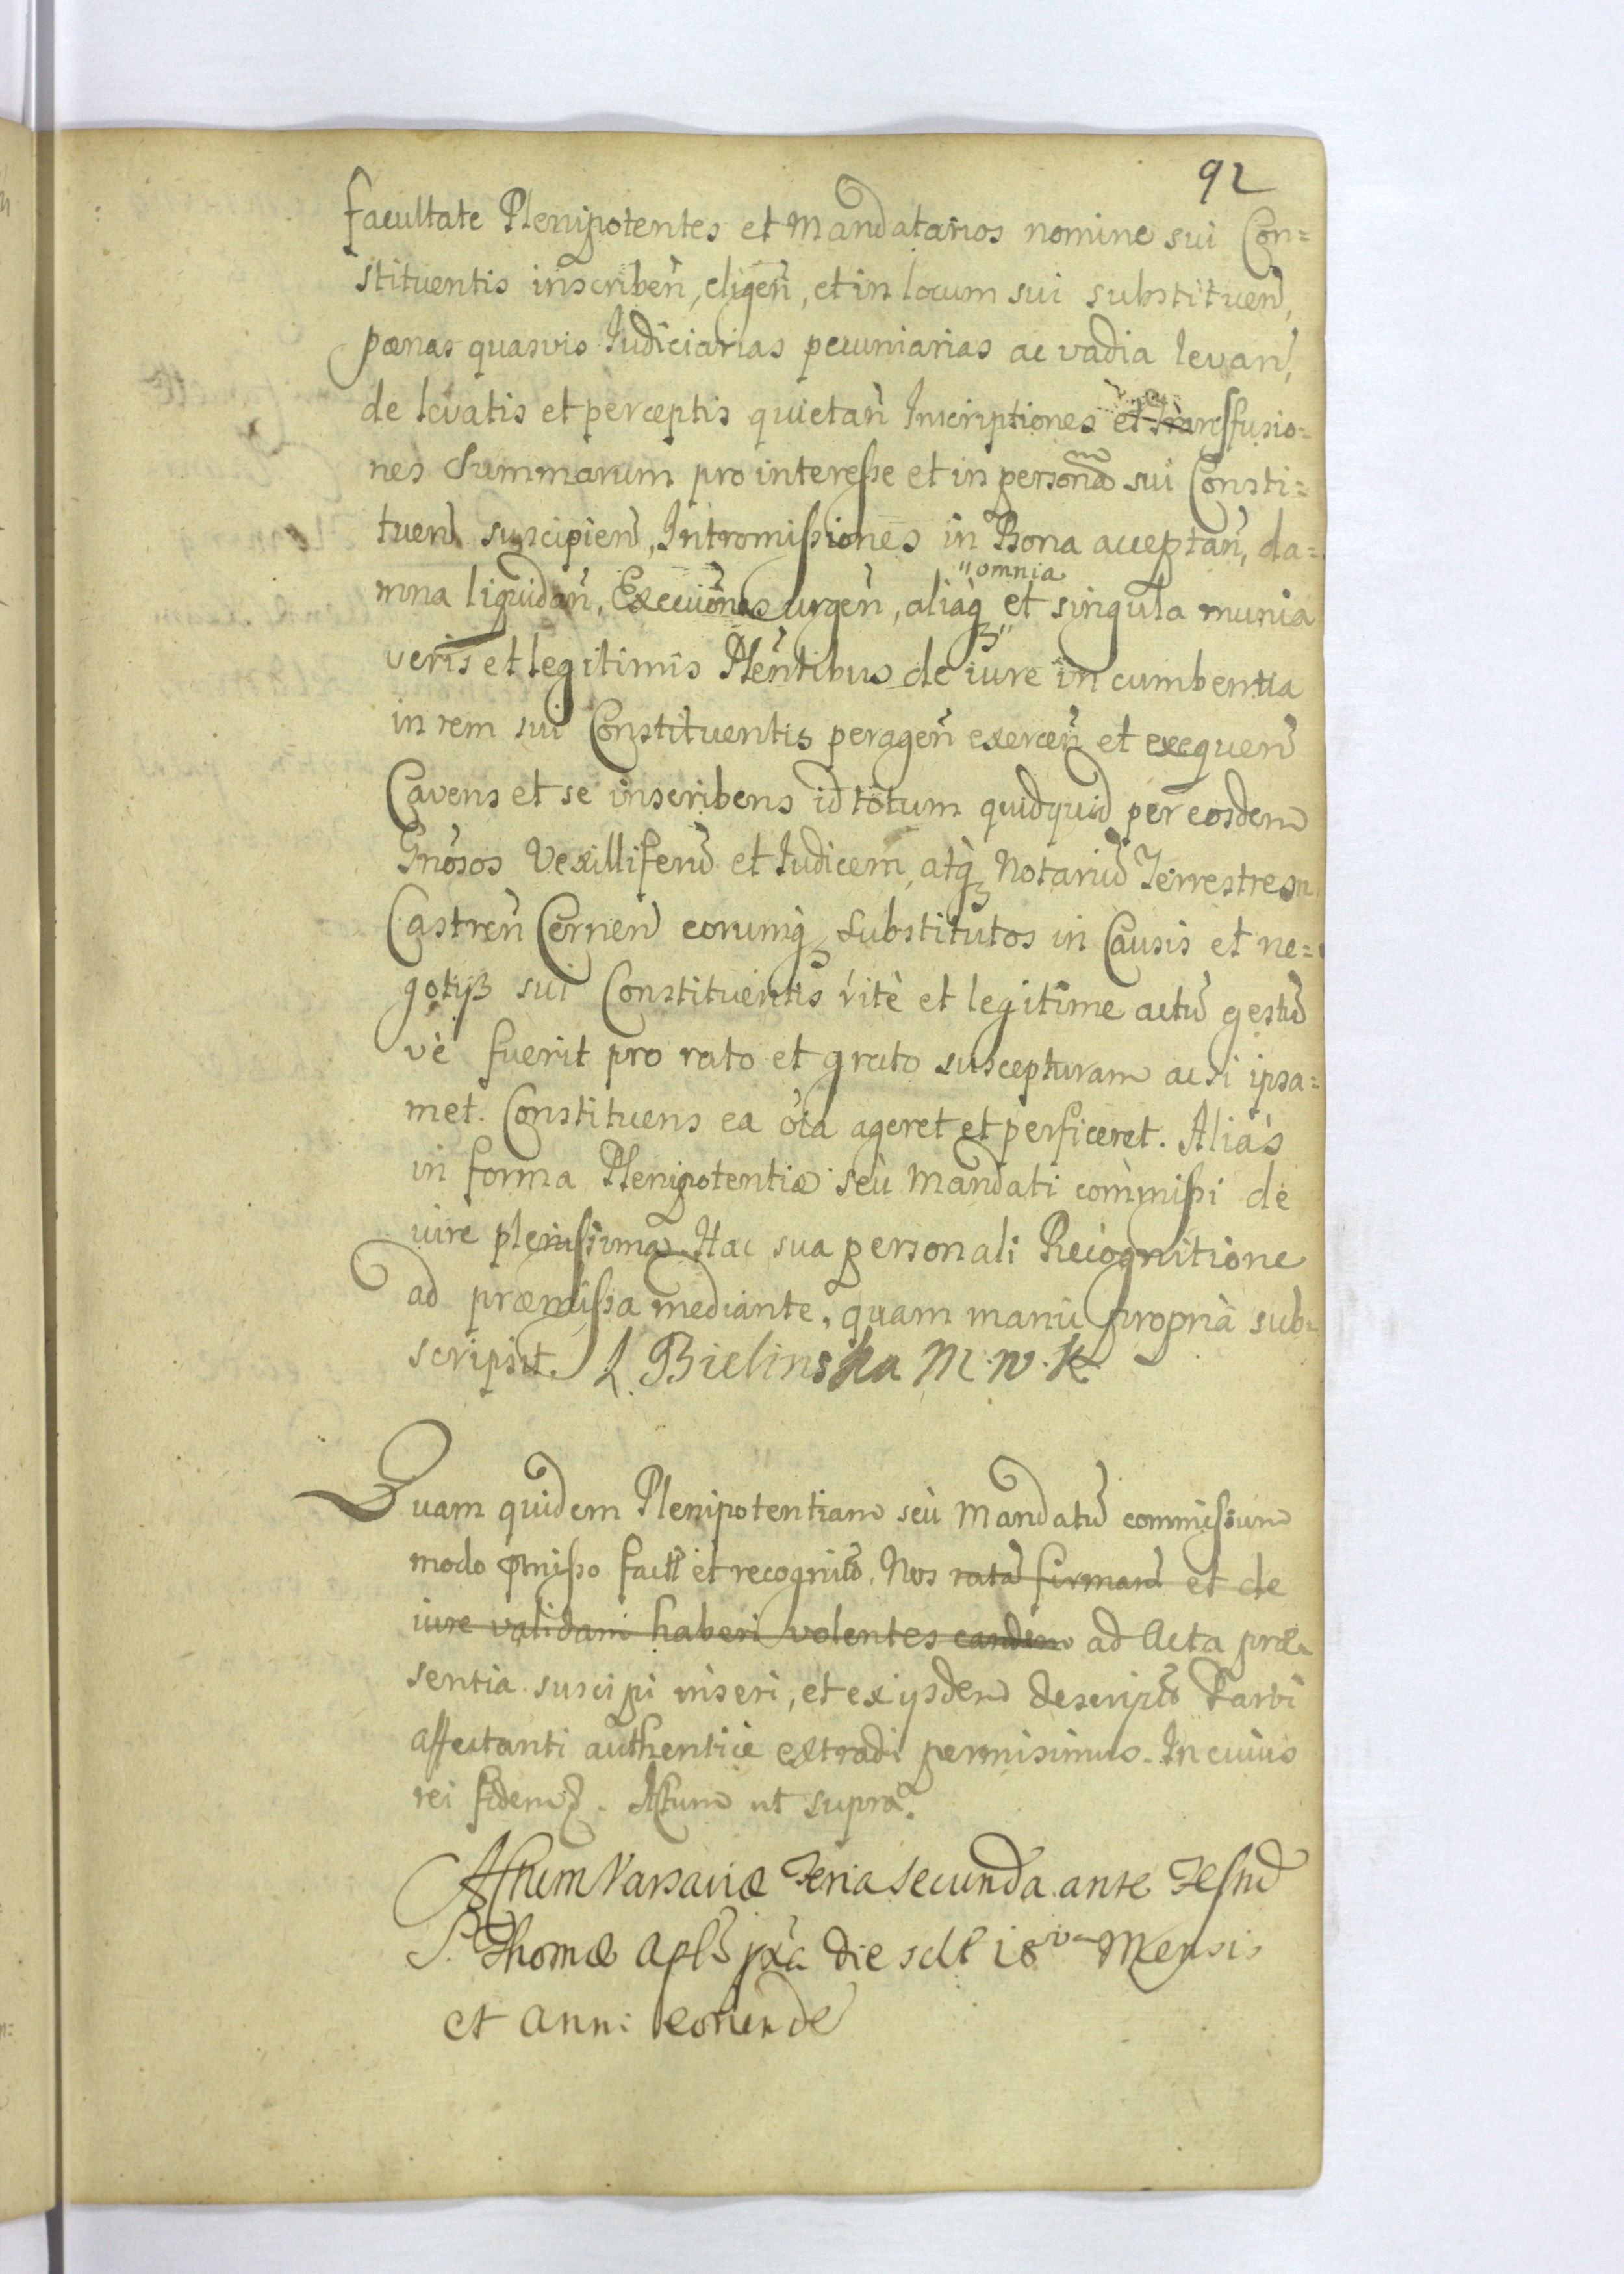 92
facultate Plenipotentes et Mandatarios nomine sui Con=
stituentis inscriben̄, eligen̄, et in locum sui substituen̄,
pœnas quasvis Judiciarias pecuniarias ac vadia levan̄,
de levatis et perceptis quietan̄ Inscriptiones et Transfusio=
nes Summarum pro interesse et in personam sui Consti=
tuen̄ suscipien̄, Intromissiones in Bona acceptan̄, da=
omnia
mna liquidan̄, Execuiōnes urgen̄, aliaqꝫ et singula munia
veris et legitimis Plen̄tibus de iure in cumbentia
in rem sui Constituentis peragen̄ exercen̄ et exequen̄
Cavens et se inscribens id totum quidquid per eosdem
Gn̄osos Vexilliferū et Judicem, atqꝫ Notariū Terrestrem
Castren̄ Cernen̄ eorumqꝫ Substitutos in Causis et ne=
gotijs sui Constituentis ritè et legitime actū gestū
vè fuerit pro rato et grato suscepturam ac si ipsa=
met. Constituens ea oīa ageret et perficeret. Aliàs
in forma Plenipotentiæ seù Mandati commissi de
iure plenissima. Hac sua personali Recognitione
ad præmissa mediante, quam manu proprià sub=
scripsit. L Bielinska M. N. K
Quam quidem Plenipotentiam seù Mandatū commissum
modo p̄misso fact̄ et recognitū, Nos ratā firmam et de
iure validam haberi volentes eandem ad Acta præ
sentia suscipi inseri, et ex ijsdem descriptū Parti
affectanti authenticè extradi permisimus. In cuius
rei fidem. Actum ut supra.
Actum Varsaviæ Feria Secunda ante Festū
S. Thomæ Apl̄i px̄a die sclt 18va Mensis
et Anni eorunde